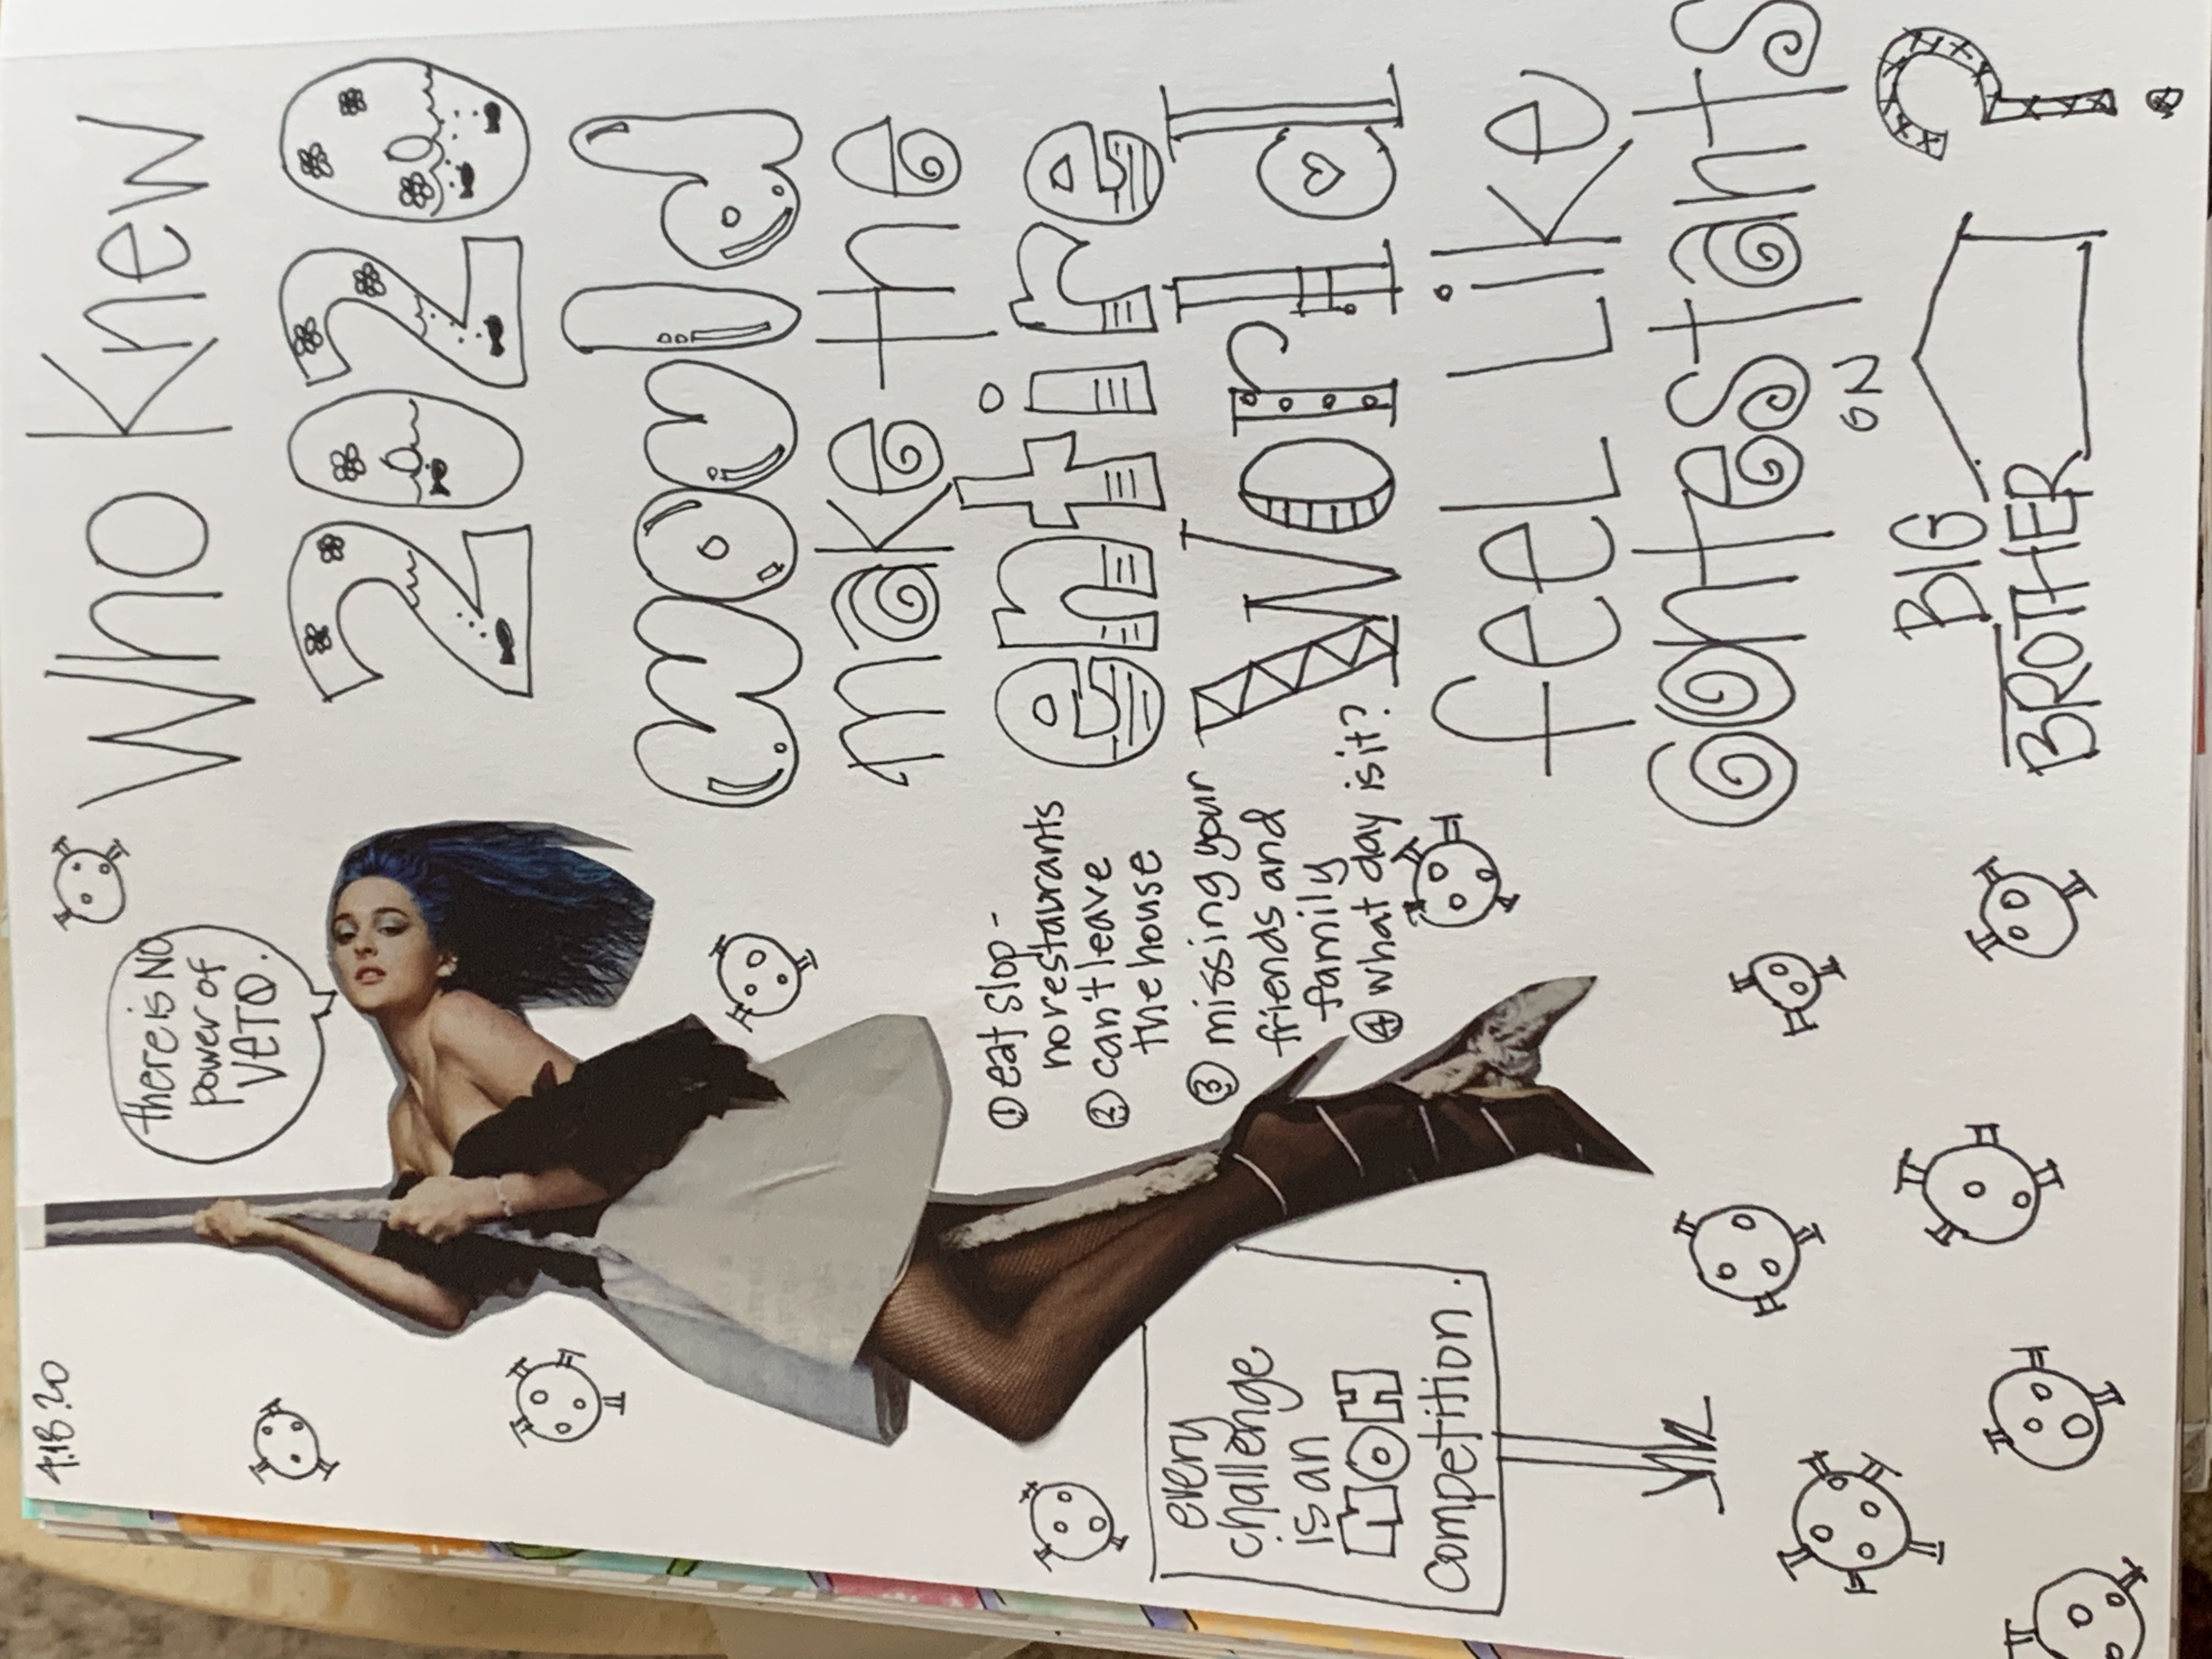 4.18.20
there is NO
power of
VETO.
Who Knew
2020
would
make the
entire
World
feel Like
contestants
ON
BIG
BROTHER
?
① eat slop -
no restaurants
② can't leave
the house
③ missing your
friends and
family
④ what day is it?
every
challenge
is an
HOH
competition.